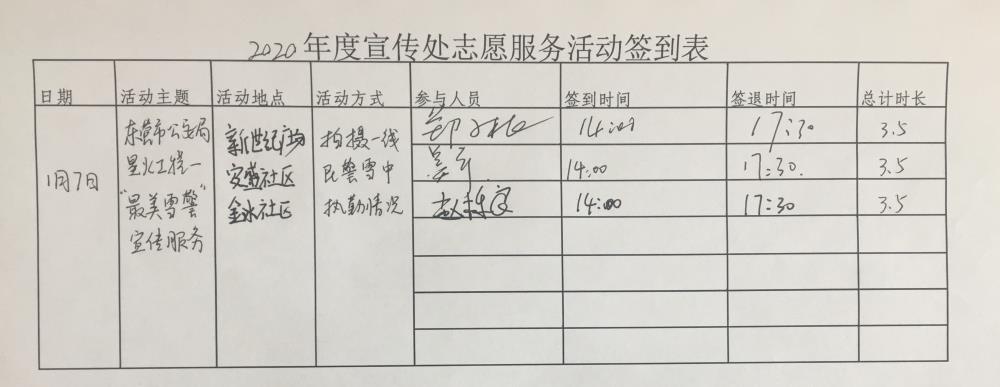 2020年度宣传处志愿服务活动签到表
日期 活动主题 活动地点 活动方式 参与人员 签到时间 签退时间 总计时长
1月7日
东营市公安局
星火工程一
"最美雪警"
宣传服务
新世纪广场
安盛社区
金水社区
拍摄一线
民警雪中
执勤情况
14:00 17:30 3.5
14:00 17:30. 3.5
14:00 17:30 3.5